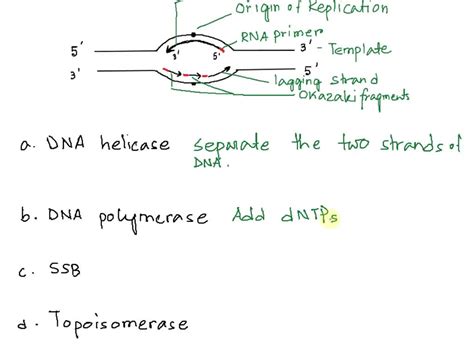 Origin of Replication
RNA primer
5' 3' 5' 3' - Template
3' 5'
lagging strand
Okazaki fragments
a. DNA helicase Separate the two strands of
DNA.
b. DNA polymerase Add dNTPs
c. SSB
d. Topoisomerase